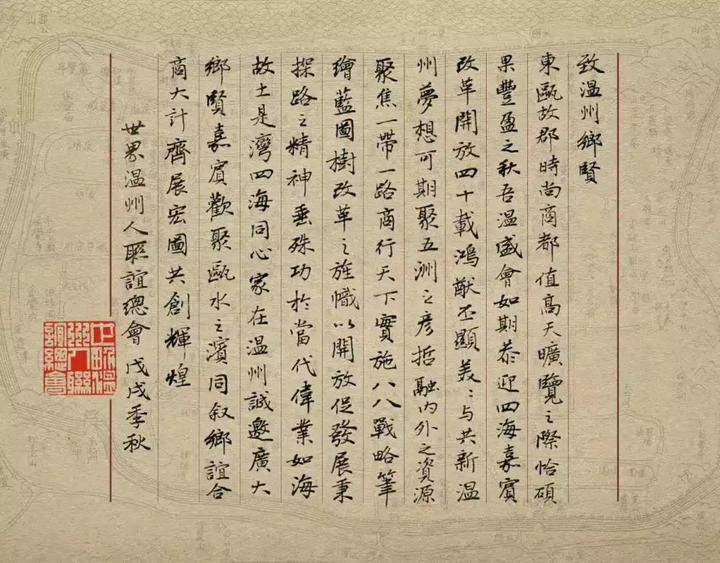 致温州鄉賢
東甌故郡時尚商都值高天曠覽之際恰碩
果豐盈之秋吾温盛會如期恭迎四海嘉賓
改革開放四十載鴻猷丕顯美美與共新温
州夢想可期聚五洲之彥哲融内外之資源
聚焦一帶一路商行天下實施八八戰略筆
繪藍圖樹改革之旌幟以開放促發展秉
探路之精神垂殊功於當代偉業如海
故土是灣四海同心家在温州誠邀廣大
鄉賢嘉賓歡聚甌水之濱同叙鄉誼合
商大計齊展宏圖共創輝煌
世界温州人聯誼總會 戊戌季秋